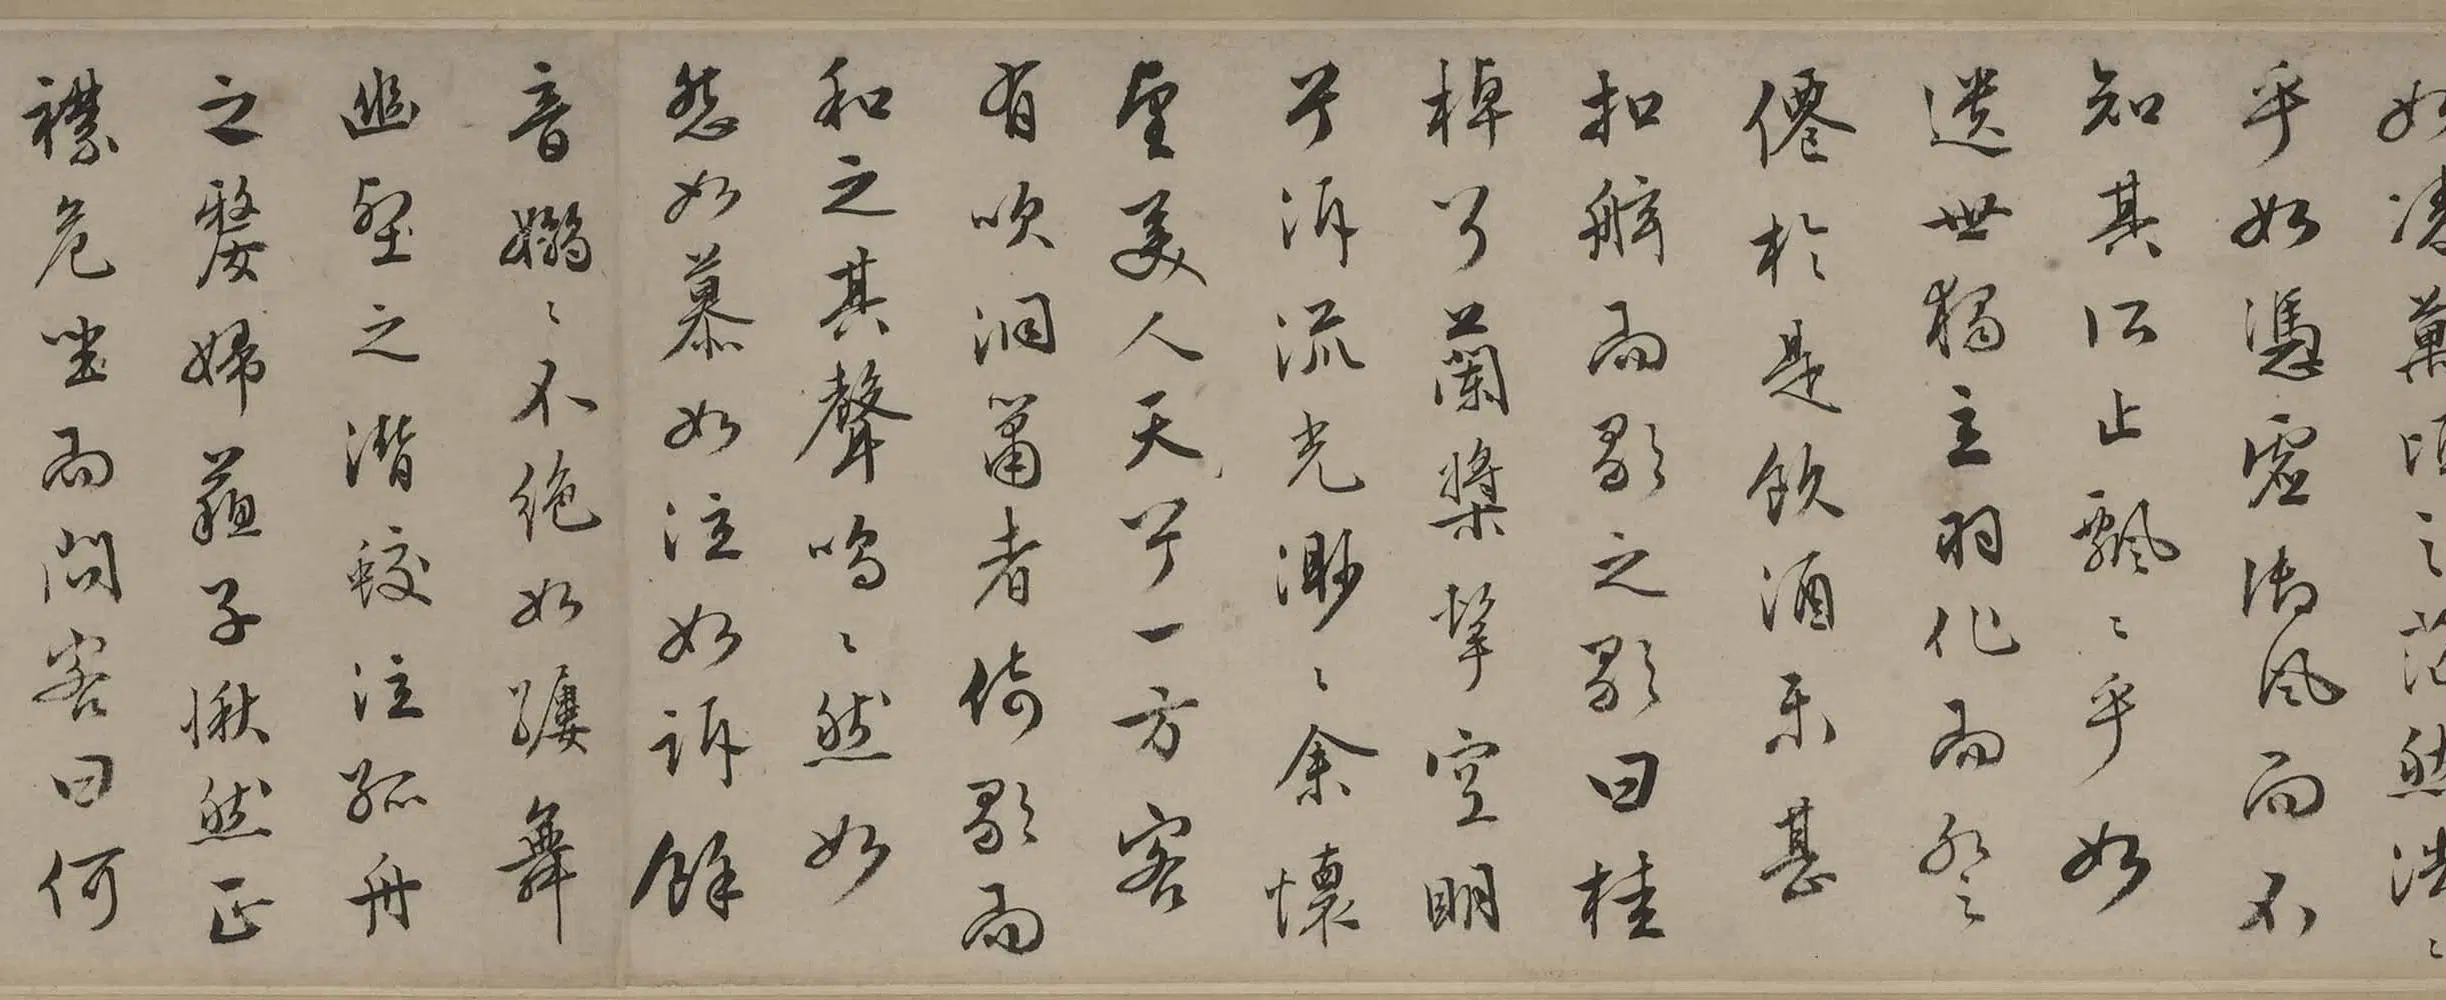 如凌萬頃之茫然浩〻
乎如憑虛御風而不
知其所止飄〻乎如
遺世獨立羽化而登
僊於是飲酒樂甚
扣舷而歌之歌曰桂
棹兮蘭槳擊空明
兮泝流光渺〻余懷
望美人天兮一方客
有吹洞簫者倚歌而
和之其聲嗚〻然如
怨如慕如泣如訴餘
音嫋〻不絕如縷舞
幽壑之潛蛟泣孤舟
之嫠婦蘓子愀然正
襟危坐而問客曰何